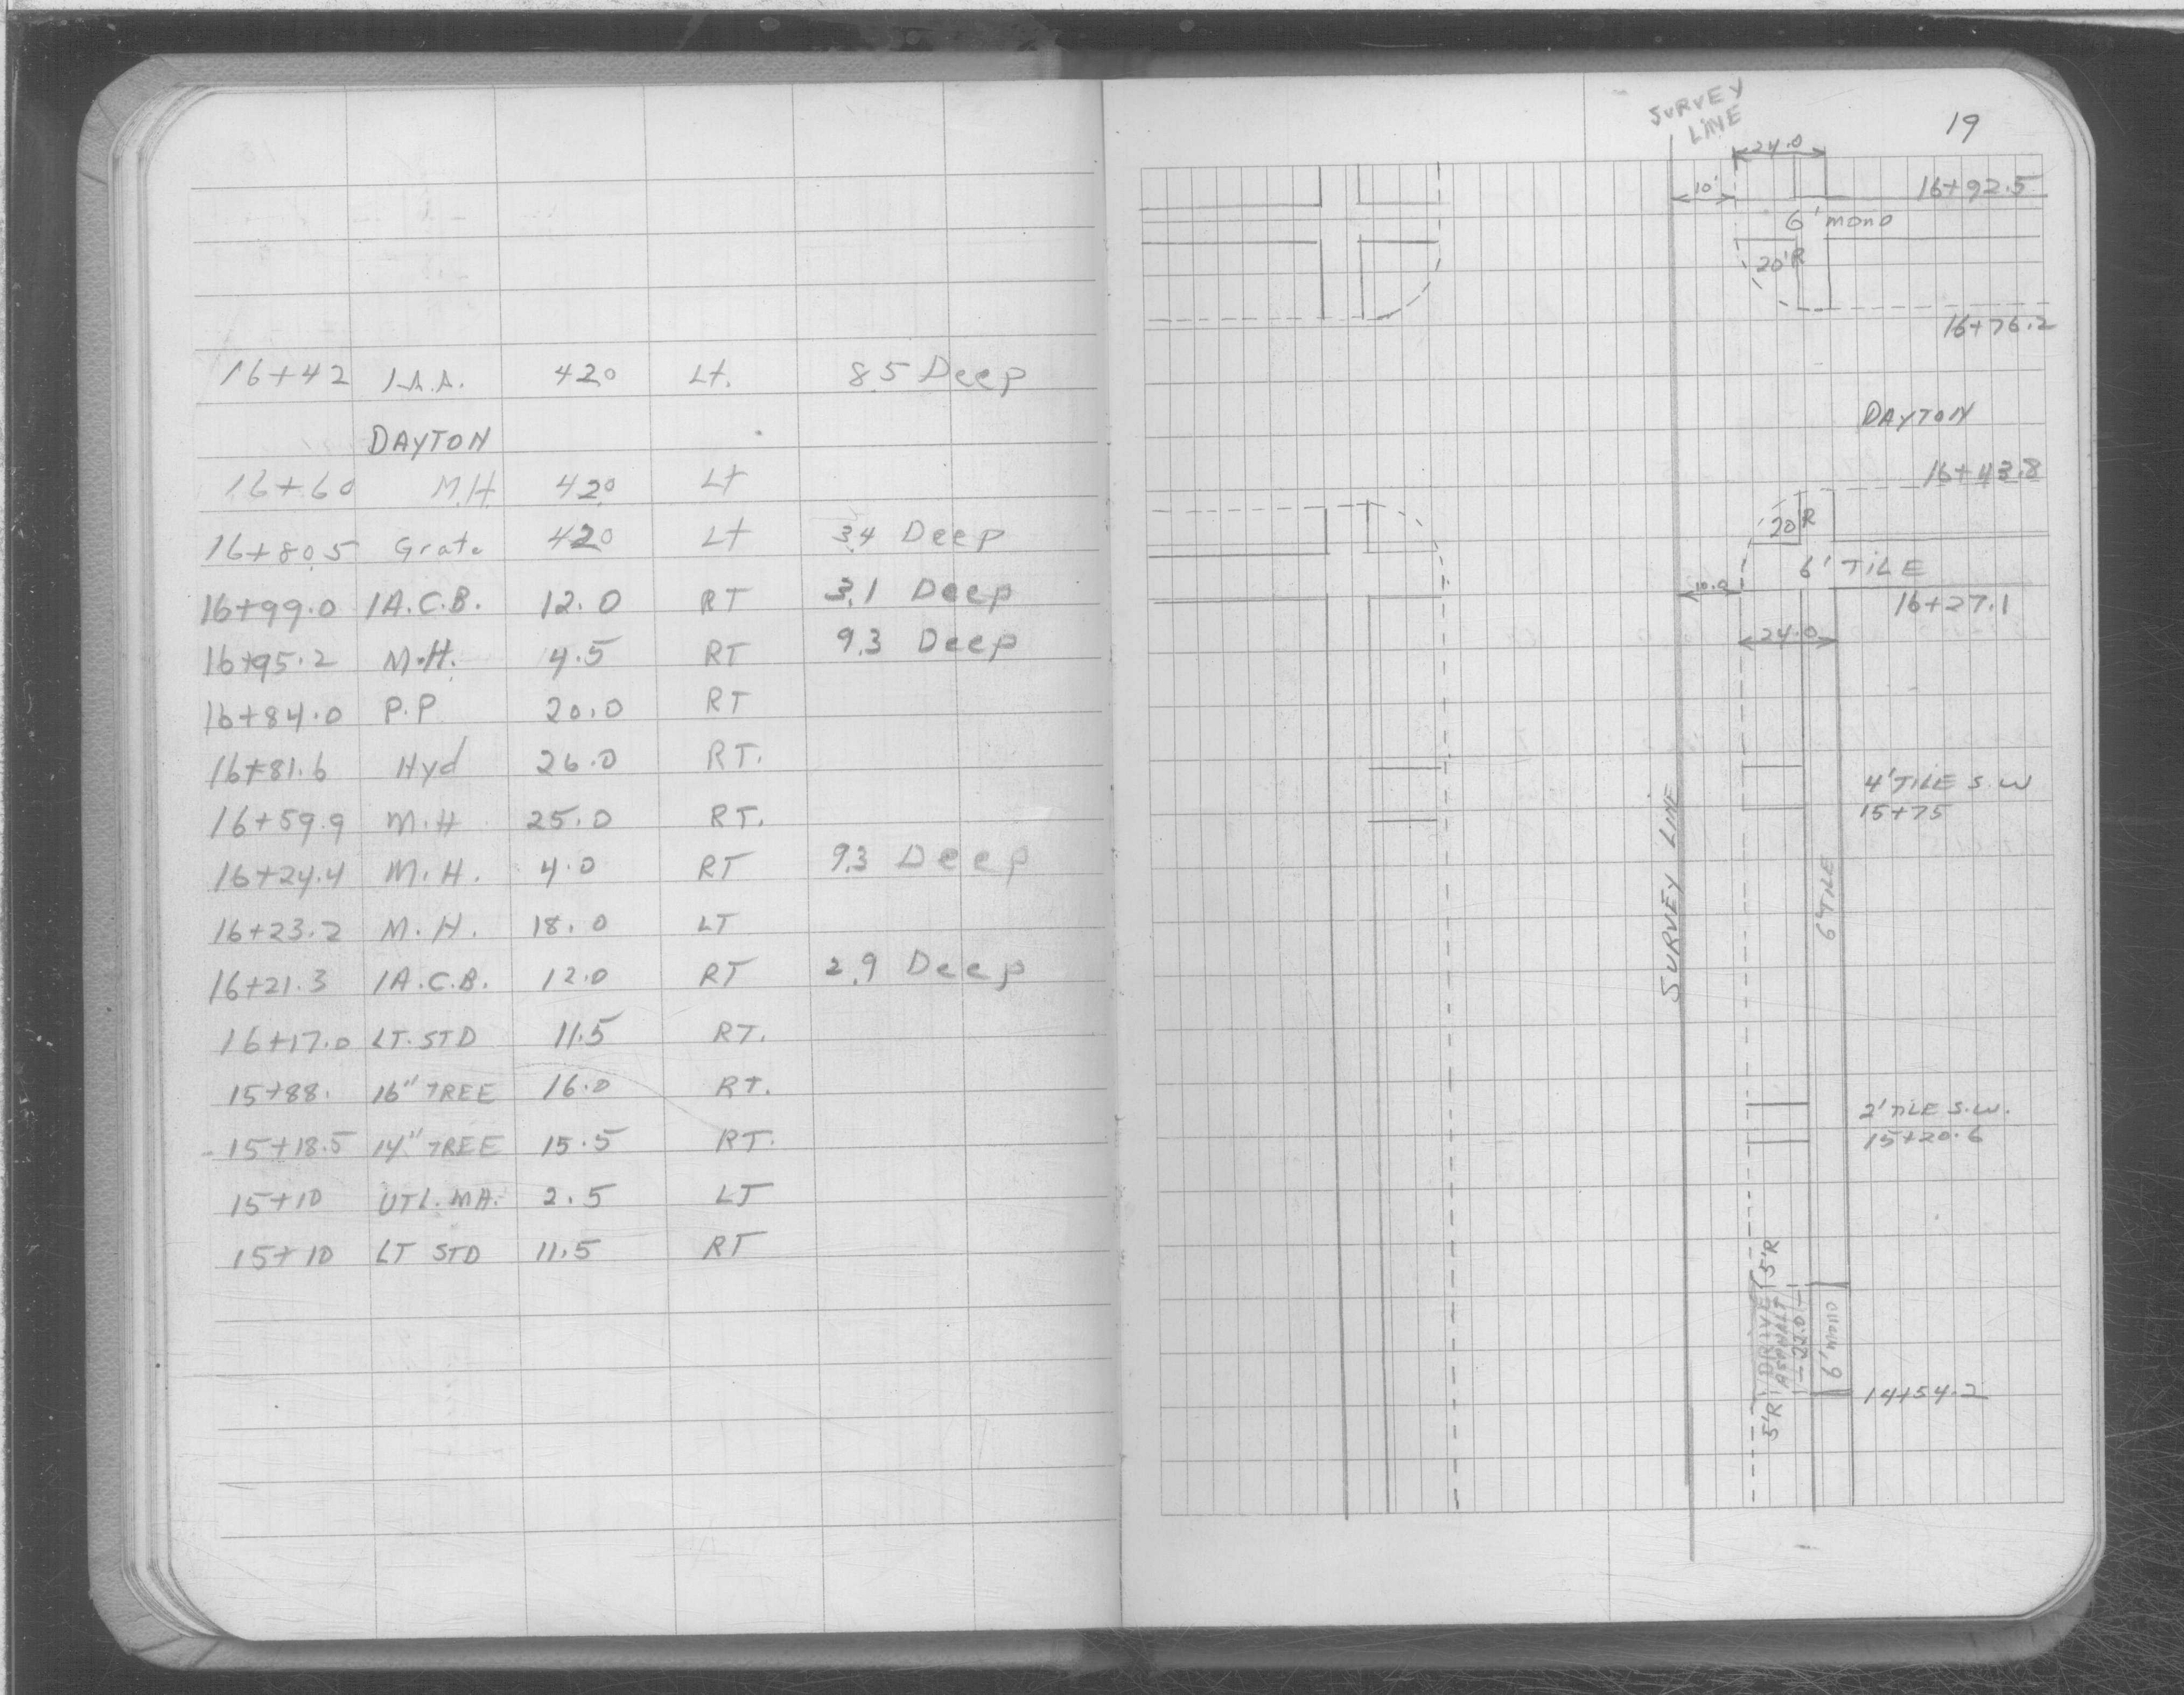 16+42 1.A.A. 42.0 Lt. 8.5 Deep
DAYTON
16+60 M.H. 42.0 Lt
16+80.5 Grate 42.0 Lt 3.4 Deep
16+99.0 1A.C.B. 12.0 RT 3.1 Deep
16+95.2 M.H. 4.5 RT 9.3 Deep
16+84.0 P.P. 20.0 RT
16+81.6 Hyd 26.0 RT.
16+59.9 M.H 25.0 RT.
16+24.4 M.H. 4.0 RT 9.3 Deep
16+23.2 M.H. 18.0 LT
16+21.3 1A.C.B. 12.0 RT 2.9 Deep
16+17.0 LT. STD 11.5 RT.
15+88. 16" TREE 16.0 RT.
15+18.5 14" TREE 15.5 RT.
15+10 UTL. MH. 2.5 LT
15+10 LT STD 11.5 RT
19
SURVEY
LINE
24.0
10'
16+92.5
6' mono
20'R
16+76.2
DAYTON
16+43.8
20'R
6' TILE
10.0
16+27.1
24.0
4' TILE S.W
15+75
SURVEY LINE
6' TILE
2' TILE S.W.
15+20.6
5'R
DRIVE
ASPHALT
22.0
6' mono
5'R
14+54.2